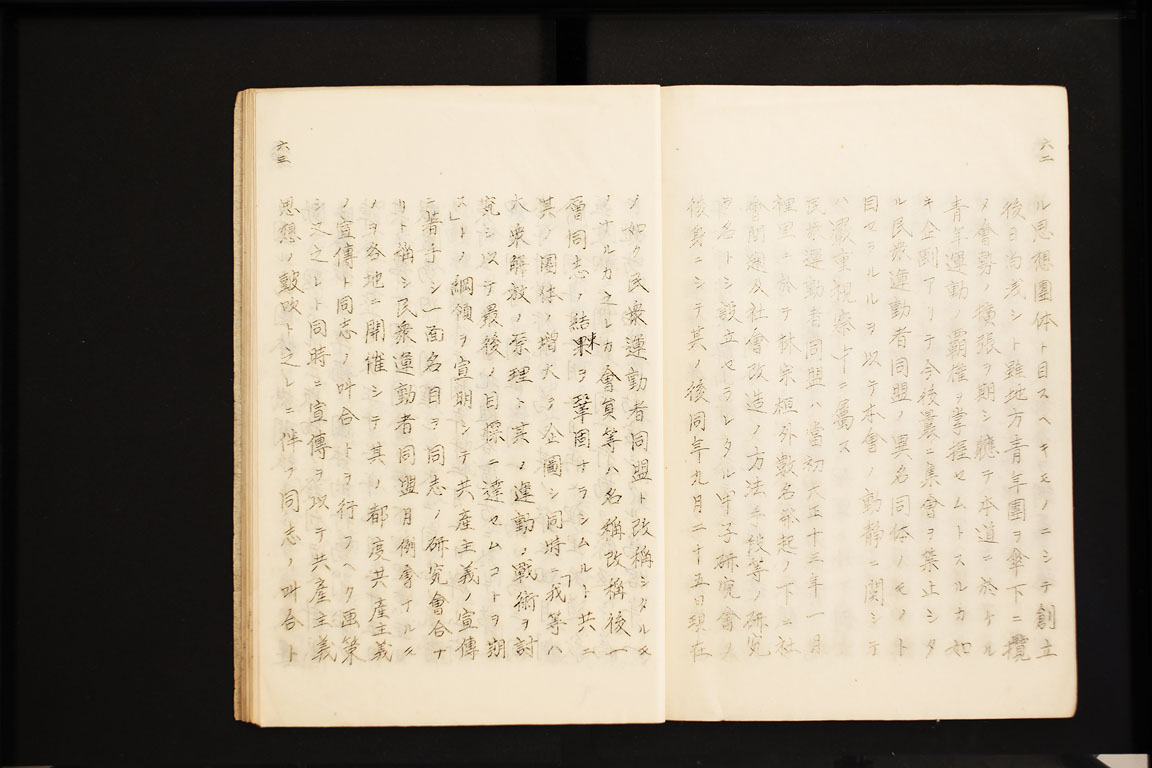 六二
ル思想團体ト目スヘキモノニシテ創立
後日尚浅シト雖地方青年團ヲ傘下ニ攬
メ會勢ノ擴張ヲ期シ聽テ本道ニ於ケル
青年運動ノ覇權ヲ掌握セムトスルカ如
キ企劃アリテ今後叢ニ集會ヲ禁止シタ
ル民衆運動者同盟ノ異名同体ノモノト
目セラルルヲ以テ本會ノ動静ニ関シテ
ハ嚴重視察中ニ屬ス
民衆運動者同盟ハ當初大正十三年一月
裡里ニ於テ林宗桓外数名發起ノ下ニ社
會問題及社會改造ノ方法手段等ノ研究
ヲ名トシ設立セラレタル甲子研究會ノ
後身ニシテ其ノ後同年九月二十五日現在
六三
ノ如ク民衆運動者同盟ト改稱シタルモ
ノナルカ之レカ會員等ハ名稱改稱後一
層同志ノ結果ヲ鞏固ナラシムルト共ニ
其ノ團体ノ増大ヲ企圖シ同時ニ「我等ハ
大衆解放ノ原理ト其ノ運動ノ戰術ヲ討
究シ以テ最後ノ目標ニ達セムコトヲ期
ス」トノ綱領ヲ宣明シテ共産主義ノ宣傳
ニ着手シ一面名目ヲ同志ノ研究會合ナ
リト稱シ民衆運動者同盟月例會ナル
ノヲ各地ニ開催シテ其ノ都度共産主義
ノ宣傳ト同志ノ叫合トヲ行フヘク画策
シ文之レト同時ニ宣傳ヲ以テ共産主義
思想ノ鼓吹ト之レニ伴フ同志ノ叫合ト